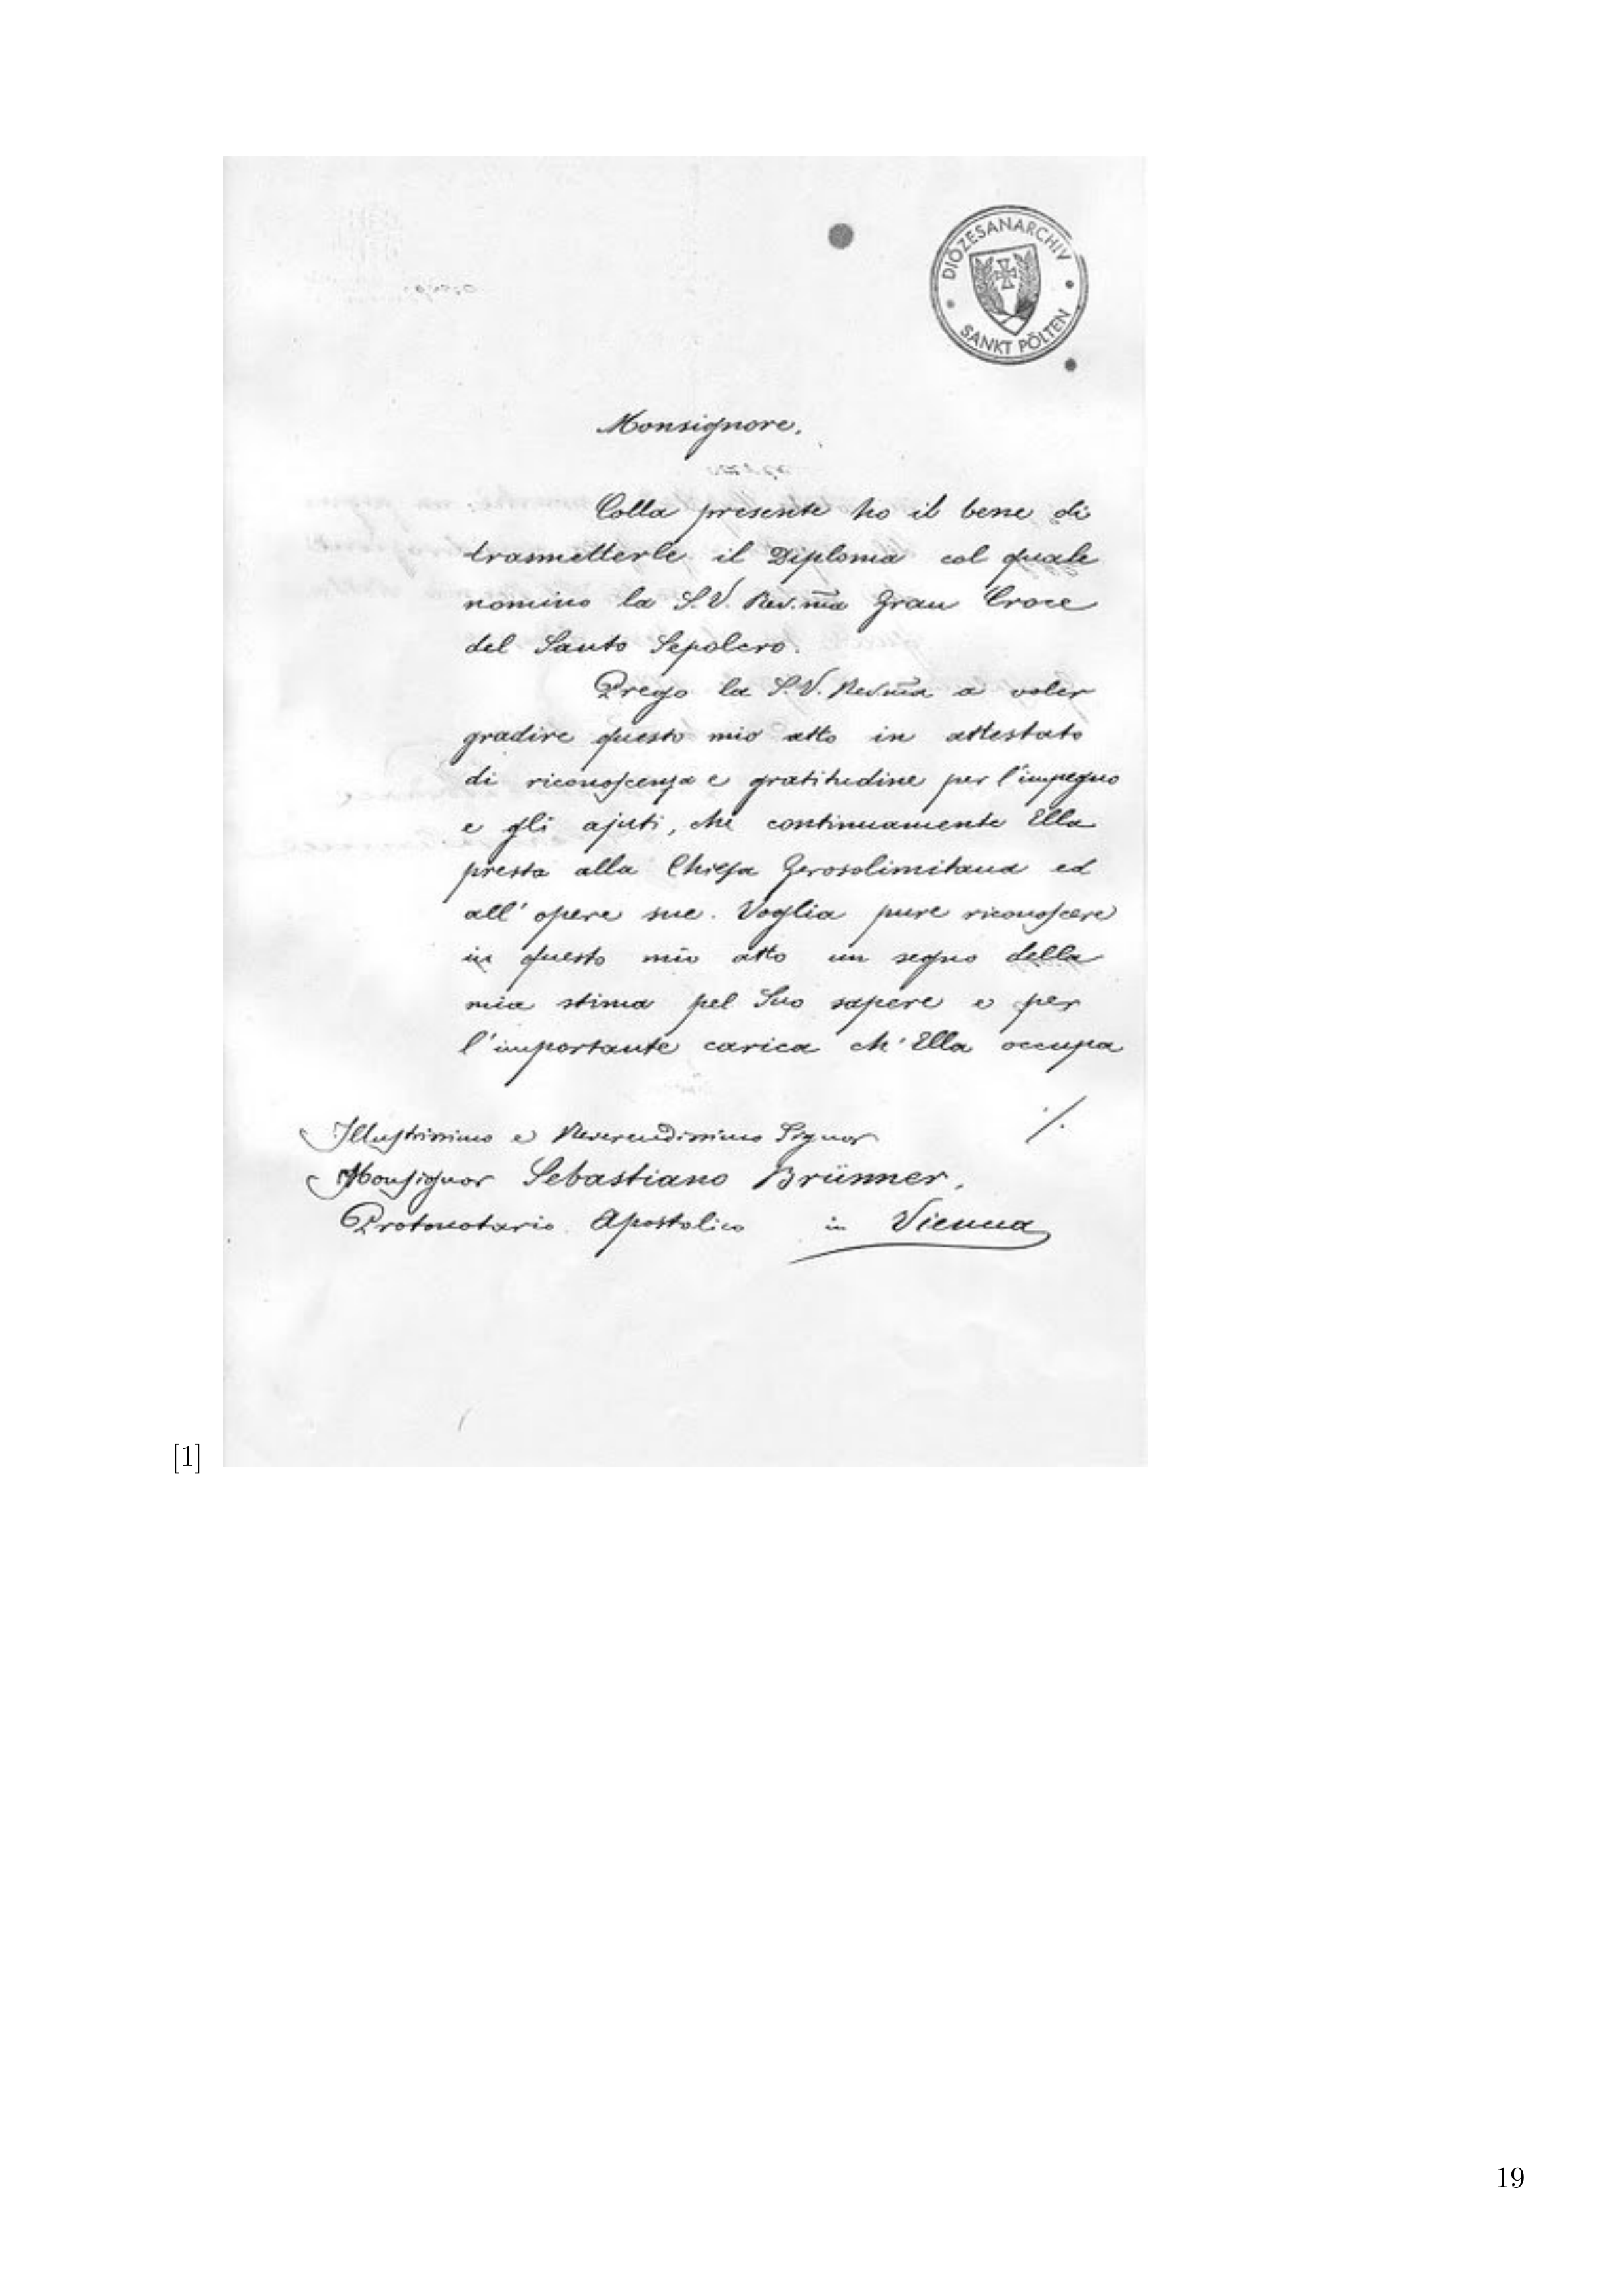 DIÖZESANARCHIV
SANKT PÖLTEN
Monsignore.
Colla presente ho il bene di
trasmetterle il Diploma col quale
nomino la S.V. Rev.ma Gran Croce
del Santo Sepolcro.
Prego la S.V. Rev.ma a voler
gradire questo mio atto in attestato
di riconoscenza e gratitudine per l'impegno
e gli ajuti, che continuamente Ella
presta alla Chiesa Gerosolimitana ed
all' opere sue. Voglia pure riconoscere
in questo mio atto un segno della
mia stima pel Suo sapere e per
l'importante carica ch' Ella occupa
./.
Illustrissimo e Reverendissimo Signor
Monsignor Sebastiano Brünner,
Protonotario Apostolico in Vienna
[1]
19